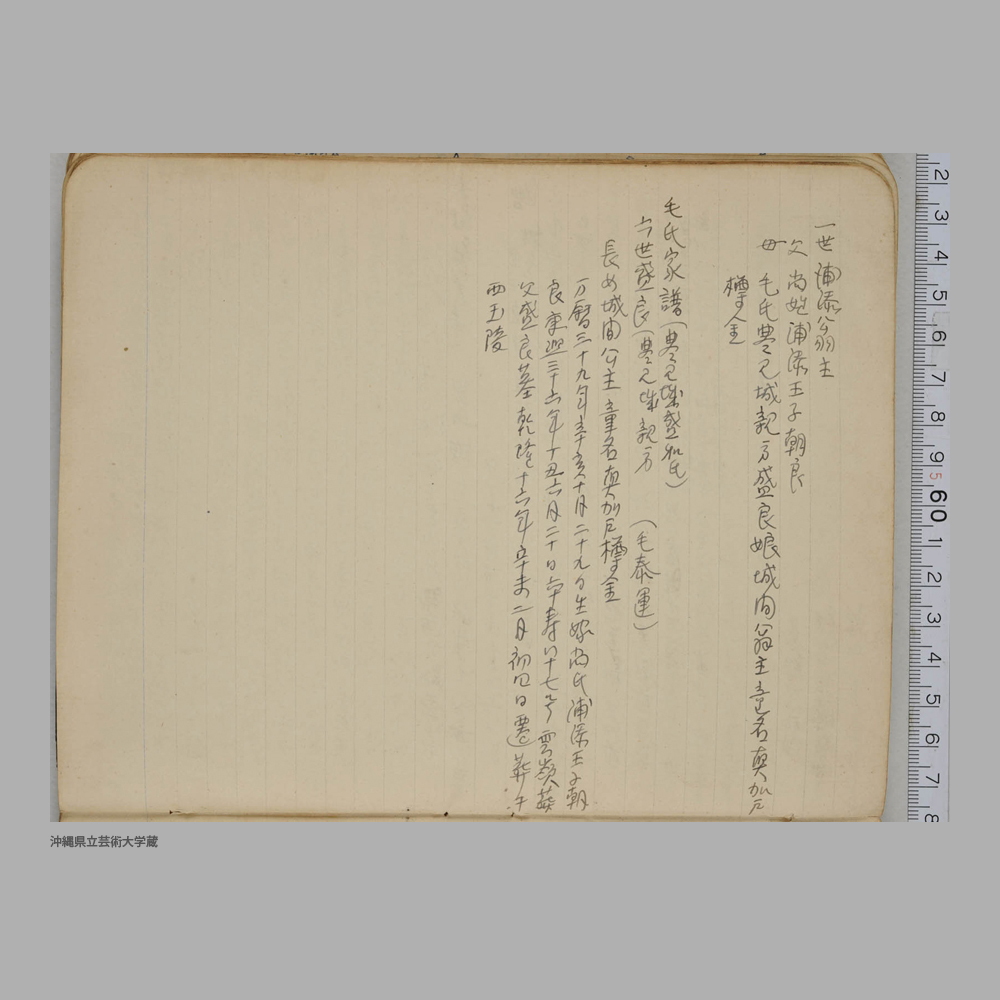 一世浦添翁主
父 尚姓浦添王子朝良
母 毛氏豊見城親方盛良娘城間翁主童名真加戸
樽金
毛氏家譜(豊見城盛和氏)
六世盛良(豊見城親方 (毛泰運)
長女城間翁主童名真加戸樽金
万暦三十九年辛亥十月二十九日生嫁尚氏浦添王子朝
良康熙三十六年丁丑六月二十日卒寿八十七号雲嶺葬
父盛良墓乾隆十六年辛未二月初四日遷葬于
西玉陵
沖縄県立芸術大学蔵
2 3 4 5 6 7 8 9 60 1 2 3 4 5 6 7 8